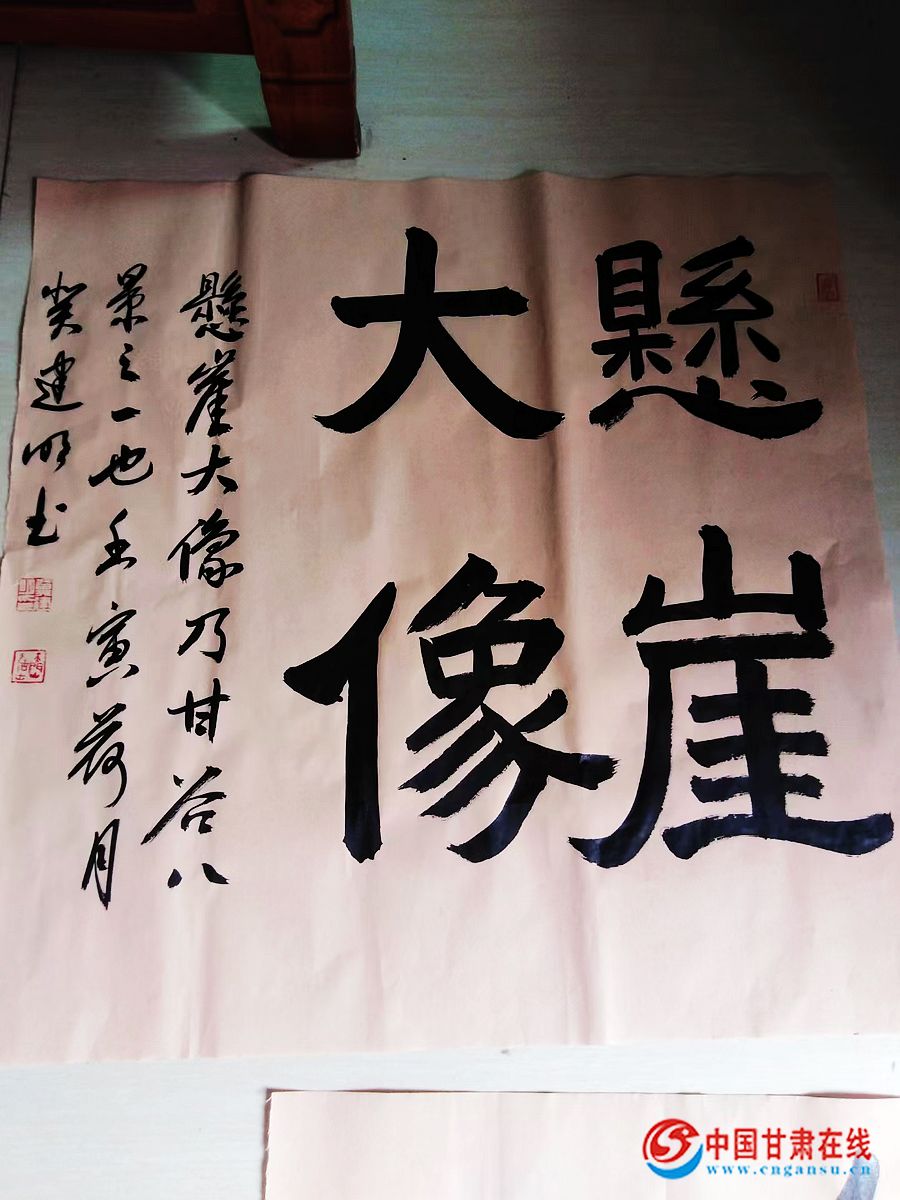 懸崖
大像
懸崖大像乃甘谷八
景之一也壬寅荷月
建明书
中国甘肃在线
www.cngansu.cn